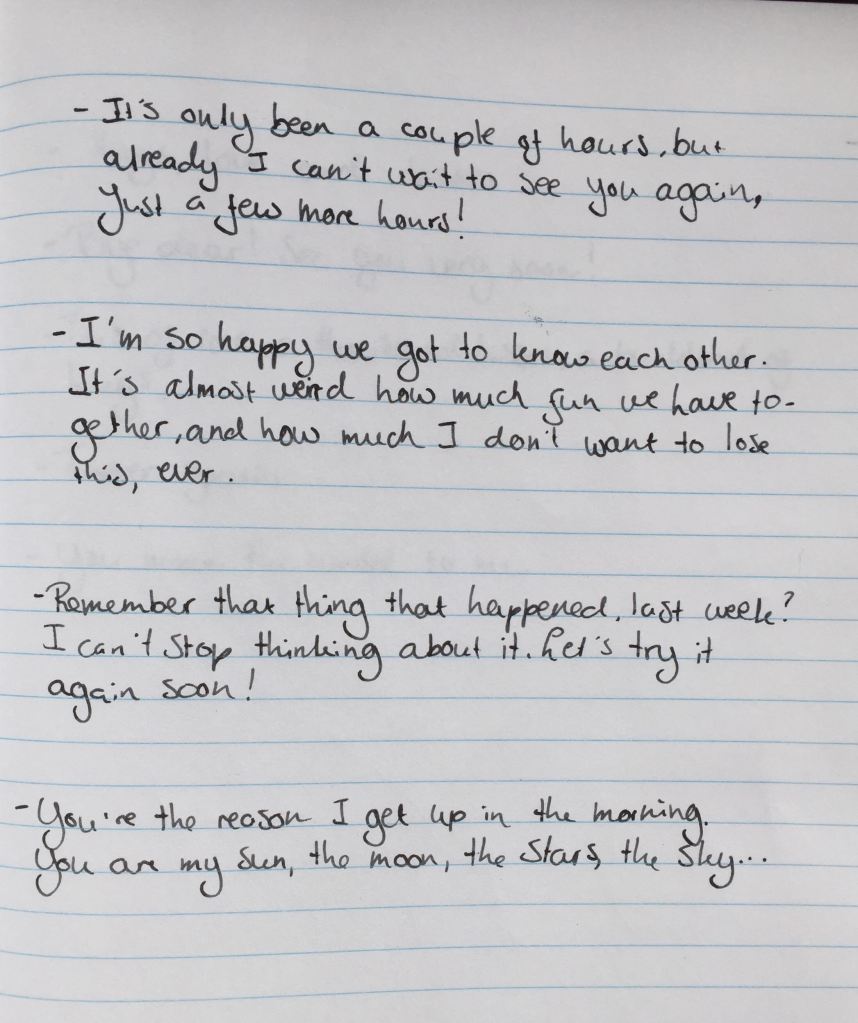 - It's only been a couple of hours, but
already I can't wait to see you again,
Just a few more hours!
- I'm so happy we got to know each other.
It's almost weird how much fun we have to-
gether, and how much I don't want to lose
this, ever.
- Remember that thing that happened, last week?
I can't stop thinking about it. Let's try it
again soon!
- You're the reason I get up in the morning.
You are my sun, the moon, the stars, the sky...